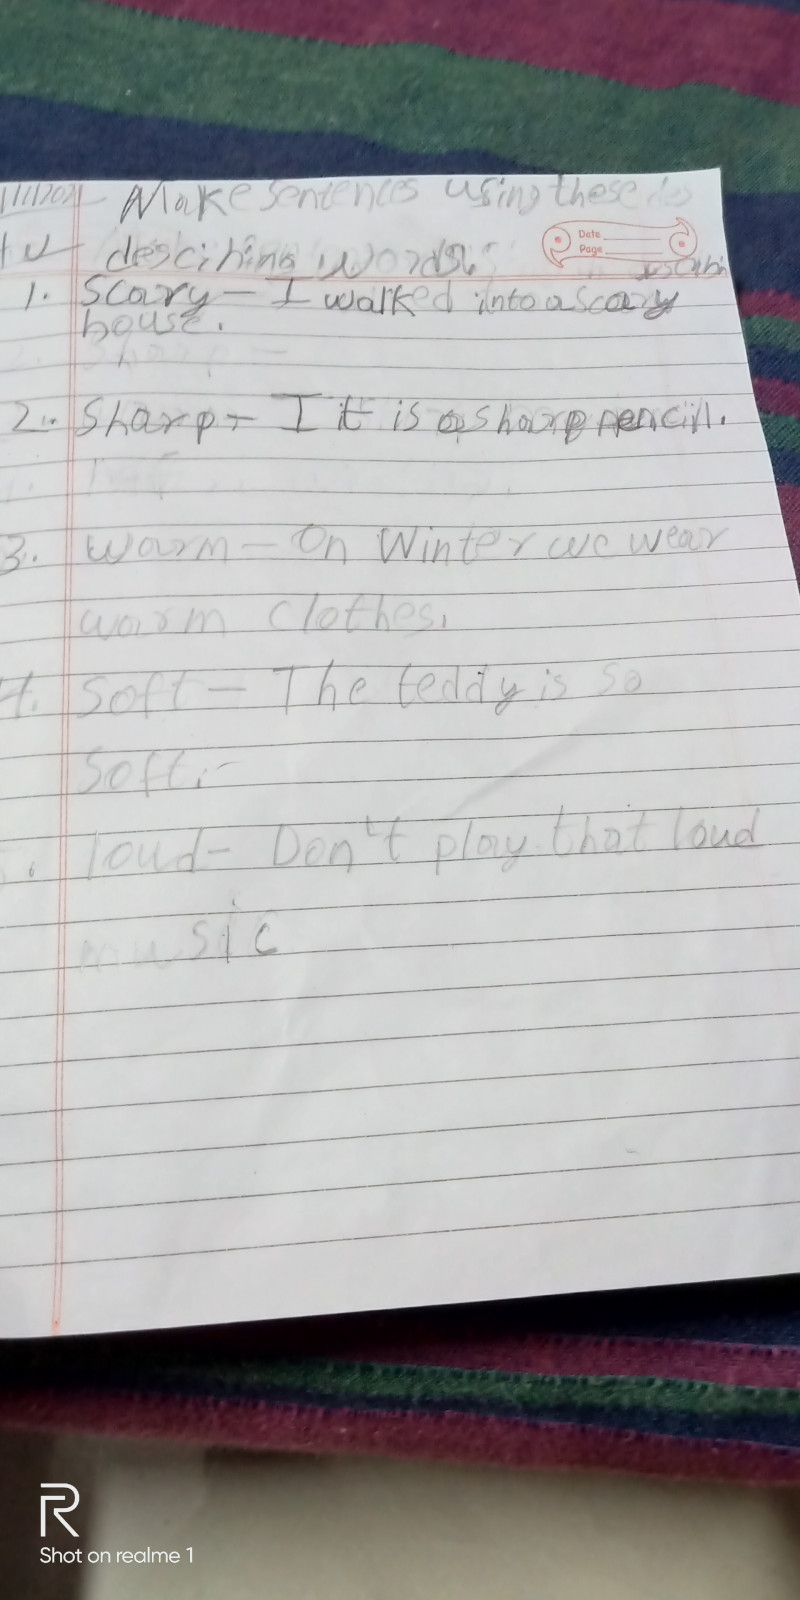 Make sentences using these
Date
Page
describing words.
1. Scary - I walked into a scary
house.
2. Sharp -
2. Sharp - I it is a sharp pencil.
3. Warm - On Winter we wear
warm clothes.
4. Soft - The teddy is so
soft.
loud - Don't play that loud
music
R
Shot on realme 1